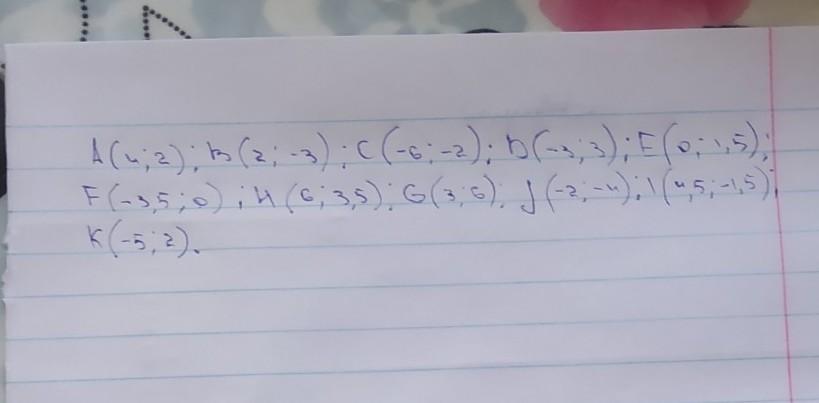 A(4;2); B(2;-3); C(-6;-2); D(-3;3); E(0;1,5);
F(-3,5;0); H(6;3,5); G(3;6); J(-2;-4); I(4,5;-1,5);
K(-5;2).